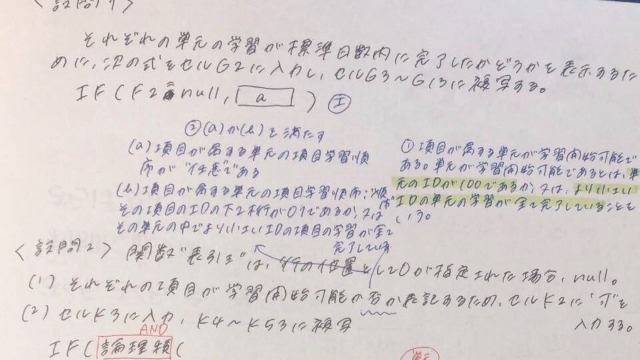 〈設問1〉
それぞれの単元の学習が標準日数内に完了したかどうかを表示するた
めに、次の式をセルG2に入力し、セルG3〜G13に複写する。
IF(F2=null, a ) 工
②(a)か(b)を満たす
(a)項目が属する単元の項目学習順
序が"任意"である
(b)項目が属する単元の項目学習順序:"順"
その項目のIDの下2桁が01であるか、又は
その単元の中でより小さいIDの項目の学習が全て
完了している
①項目が属する単元が学習開始可能で
ある。単元が学習開始可能であるとは、単
元のIDが100であるか、又は、より小さい
IDの単元の学習が全て完了していることを
いう。
〈設問2〉 関数"表引き"は、行の位置として0が指定された場合、null。
(1) それぞれの項目が学習開始可能か否か表記するため、セルK2に
入力する。
(2) セルK3に入力、K4〜K53に複写
AND
IF(論理積(